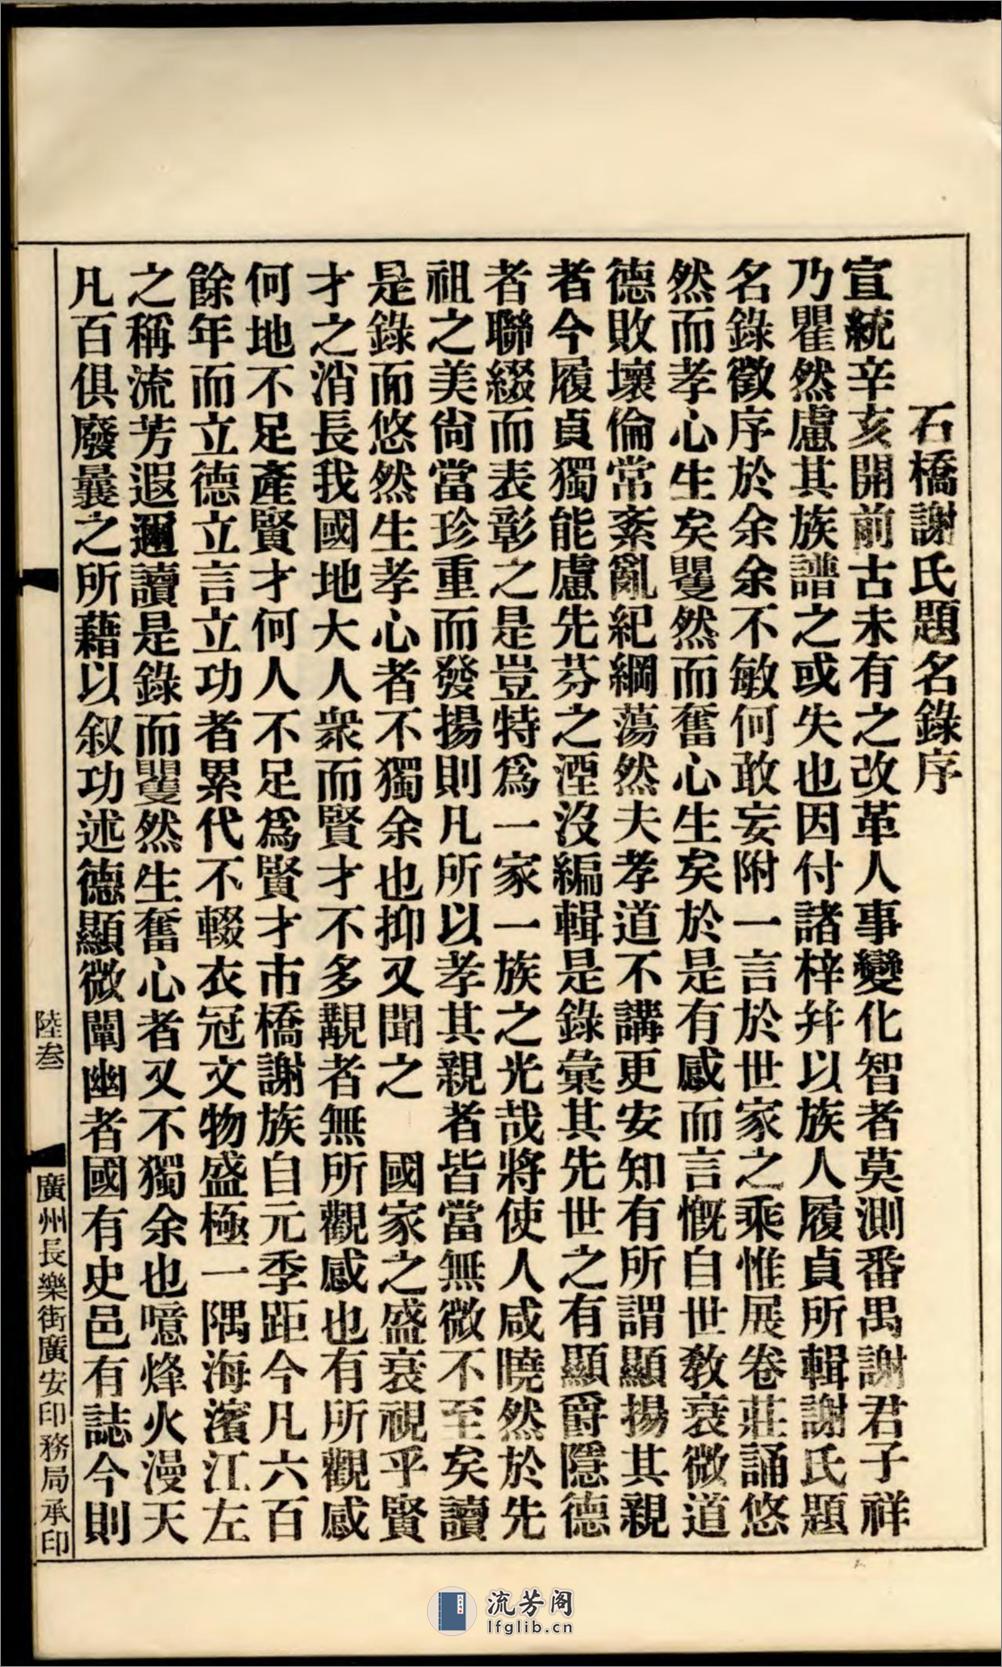 石橋謝氏題名錄序
宣統辛亥開前古未有之改革人事變化智者莫測番禺謝君子祥
乃瞿然慮其族譜之或失也因付諸梓并以族人履貞所輯謝氏題
名錄徵序於余余不敏何敢妄附一言於世家之乘惟展卷莊誦悠
然而孝心生矣瞿然而奮心生矣於是有感而言慨自世教衰微道
德敗壞倫常紊亂紀綱蕩然夫孝道不講更安知有所謂顯揚其親
者今履貞獨能慮先芬之湮沒編輯是錄彙其先世之有顯爵隱德
者聯綴而表彰之是豈特爲一家一族之光哉將使人咸曉然於先
祖之美尙當珍重而發揚則凡所以孝其親者皆當無微不至矣讀
是錄而悠然生孝心者不獨余也抑又聞之　國家之盛衰視乎賢
才之消長我國地大人衆而賢才不多覯者無所觀感也有所觀感
何地不足產賢才何人不足爲賢才市橋謝族自元季距今凡六百
餘年而立德立言立功者累代不輟衣冠文物盛極一隅海濱江左
之稱流芳遐邇讀是錄而瞿然生奮心者又不獨余也噫烽火漫天
凡百俱廢曩之所藉以叙功述德顯微闡幽者國有史邑有誌今則
陸叁
廣州長樂街廣安印務局承印
流芳阁
lfglib.cn